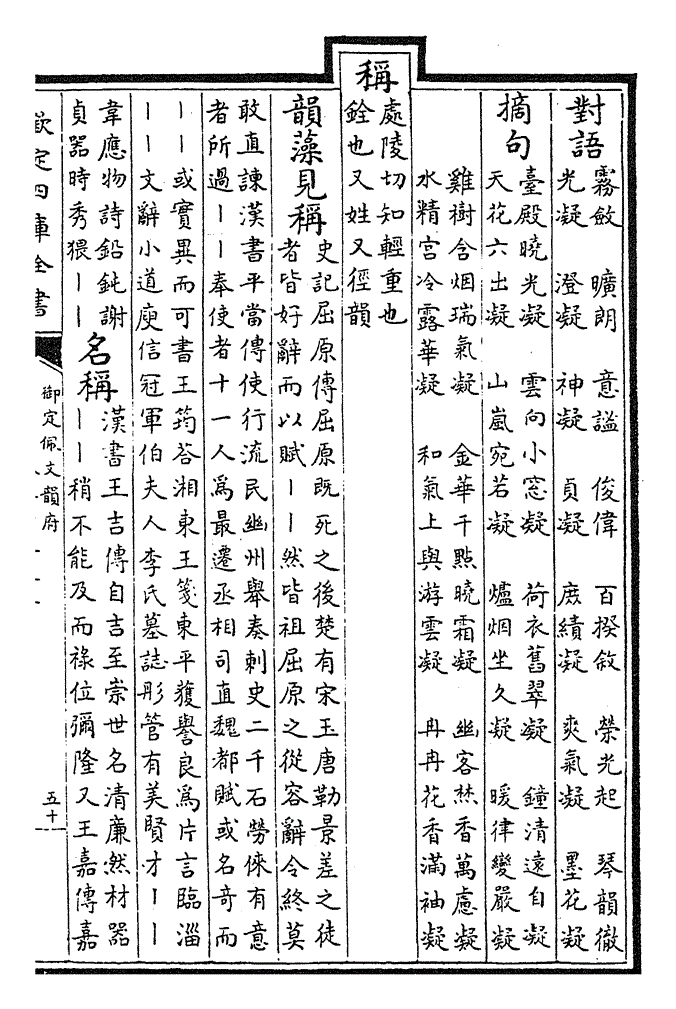 對語
霧斂 曠朗 意謐 俊偉 百揆敘 榮光起 琴韻徹
光凝 澄凝 神凝 貞凝 庶績凝 爽氣凝 墨花凝
摘句
臺殿曉光凝 雲向小窓凝 荷衣舊翠凝 鐘清遠自凝
天花六出凝 山嵐宛若凝 爐烟坐久凝 暖律變嚴凝
雞樹含烟瑞氣凝 金華千點曉霜凝 幽客焚香萬慮凝
水精宮冷露華凝 和氣上與游雲凝 冉冉花香滿袖凝
稱
處陵切知輕重也
銓也又姓又徑韻
韻藻見稱
史記屈原傳屈原既死之後楚有宋玉唐勒景差之徒
者皆好辭而以賦丨丨然皆祖屈原之從容辭令終莫
敢直諫漢書平當傳使行流民幽州舉奏刺史二千石勞倈有意
者所過丨丨奉使者十一人爲最遷丞相司直魏都賦或名奇而
丨丨或實異而可書王筠荅湘東王箋東平獲譽良爲片言臨淄
丨丨文辭小道庾信冠軍伯夫人李氏墓誌彤管有美賢才丨丨
韋應物詩鉛鈍謝
貞器時秀猥丨丨
名稱
漢書王吉傳自吉至崇世名清廉然材器
丨丨稍不能及而祿位彌隆又王嘉傳嘉
欽定四庫全書
御定佩文韻府
五十